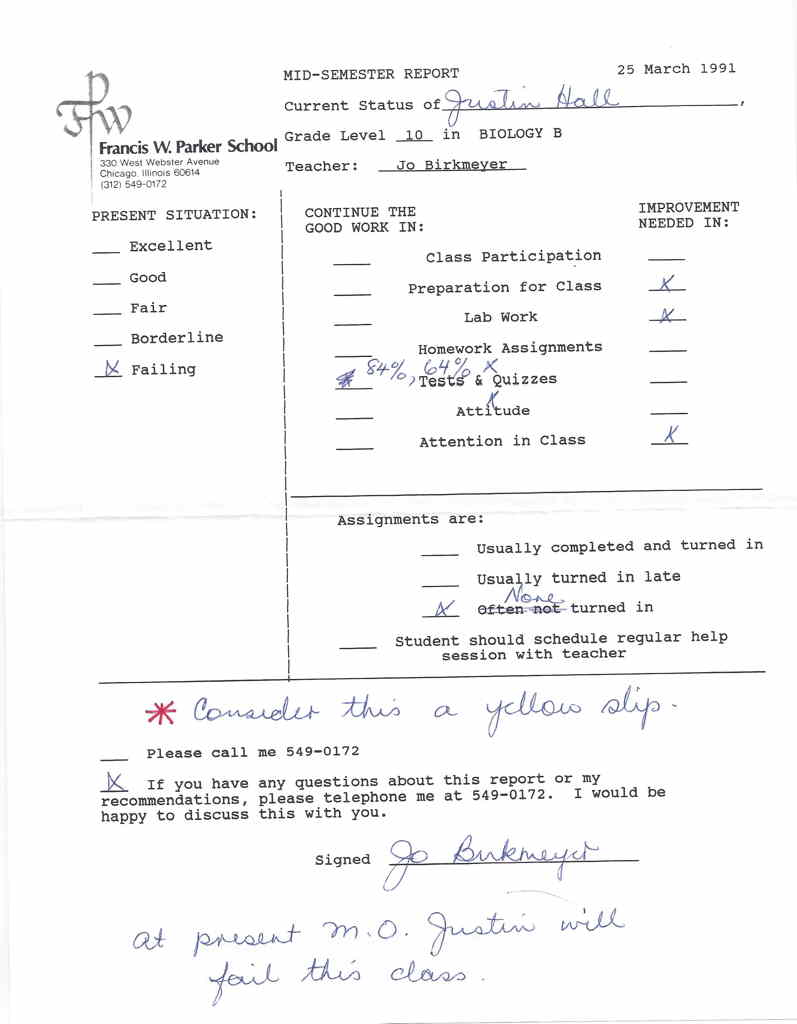 MID-SEMESTER REPORT 25 March 1991
Current Status of Justin Hall,
Grade Level 10 in BIOLOGY B
Teacher: Jo Birkmeyer
FPW
Francis W. Parker School
330 West Webster Avenue
Chicago, Illinois 60614
(312) 549-0172
PRESENT SITUATION:
___ Excellent
___ Good
___ Fair
___ Borderline
X Failing
CONTINUE THE
GOOD WORK IN:
IMPROVEMENT
NEEDED IN:
___ Class Participation ___
___ Preparation for Class X
___ Lab Work X
___ Homework Assignments ___
84%, 64% X
Tests & Quizzes ___
___ Attitude ___
___ Attention in Class X
Assignments are:
___ Usually completed and turned in
___ Usually turned in late
None
X Often not turned in
___ Student should schedule regular help
session with teacher
* Consider this a yellow slip.
___ Please call me 549-0172
X If you have any questions about this report or my
recommendations, please telephone me at 549-0172. I would be
happy to discuss this with you.
Signed Jo Birkmeyer
at present M.O. Justin will
fail this class.